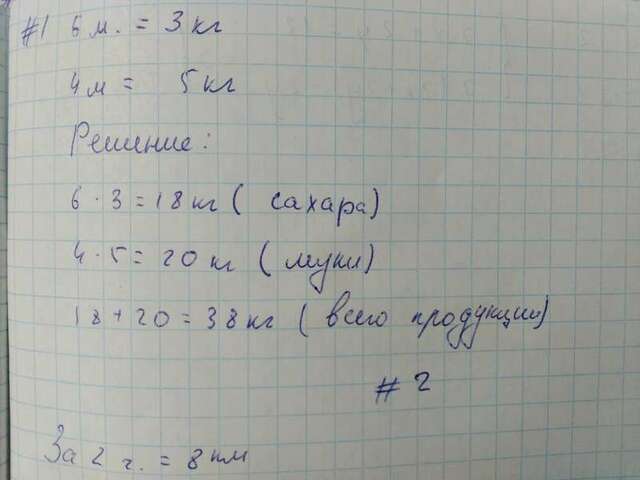 #1 6 м. = 3 кг
4 м = 5 кг
Решение:
6 · 3 = 18 кг ( сахара)
4 · 5 = 20 кг ( муки)
18 + 20 = 38 кг ( всего продукции)
# 2
За 2 ч. = 8 км